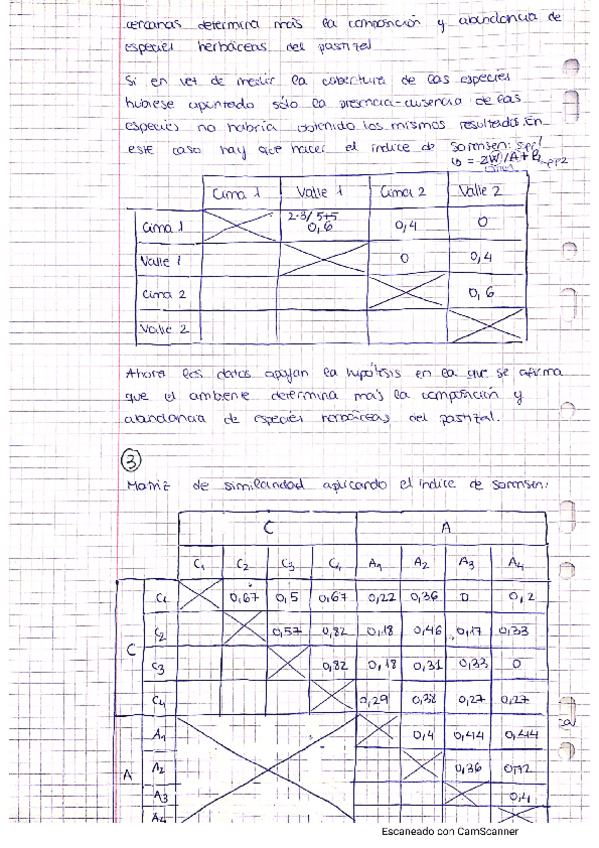 cercanas determina más la composición y abundancia de
especies herbáceas del pastizal
Si en vez de medir la cobertura de las especies
hubiese apuntado sólo la presencia-ausencia de las
especies no habría obtenido los mismos resultados. En
este caso hay que hacer el índice de Sorensen:
Cima 1 Valle 1 Cima 2 Valle 2
Cima 1 2·3/5+5 0,6 0,4 0
Valle 1 0 0,4
Cima 2 0,6
Valle 2
Ahora los datos apoyan la hipótesis en la que se afirma
que el ambiente determina más la composición y
abundancia de especies herbáceas del pastizal.
3
Matriz de similaridad aplicando el índice de Sorensen:
C A
C1 C2 C3 C4 A1 A2 A3 A4
C1 0,67 0,5 0,67 0,22 0,36 0 0,2
C2 0,57 0,82 0,18 0,46 0,17 0,33
C
C3 0,82 0,18 0,31 0,33 0
C4 0,29 0,27 0,27
A1 0,4 0,44 0,44
A2 0,36
A
A3 0,4
A4
Escaneado con CamScanner